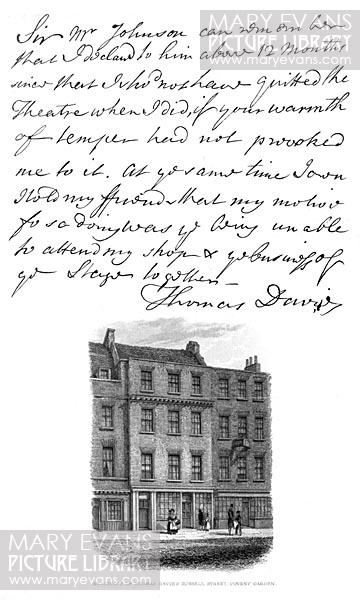 MARY EVANS
Sir Mr Johnson can remember
that I declard to him above 12 Months
PICTURE LIBRARY
www.maryevans.com
since that I shod not have quitted the
Theatre when I did, if your warmth
of temper had not provoked
me to it. At ye same time I own
I told my friends that my motive
for so doing was ye being unable
to attend my shop & ye business of
ye Stage together
Thomas Davies
MARY EVANS
PICTURE LIBRARY
DAVIES RUSSELL STREET, COVENT GARDEN.
www.maryevans.com